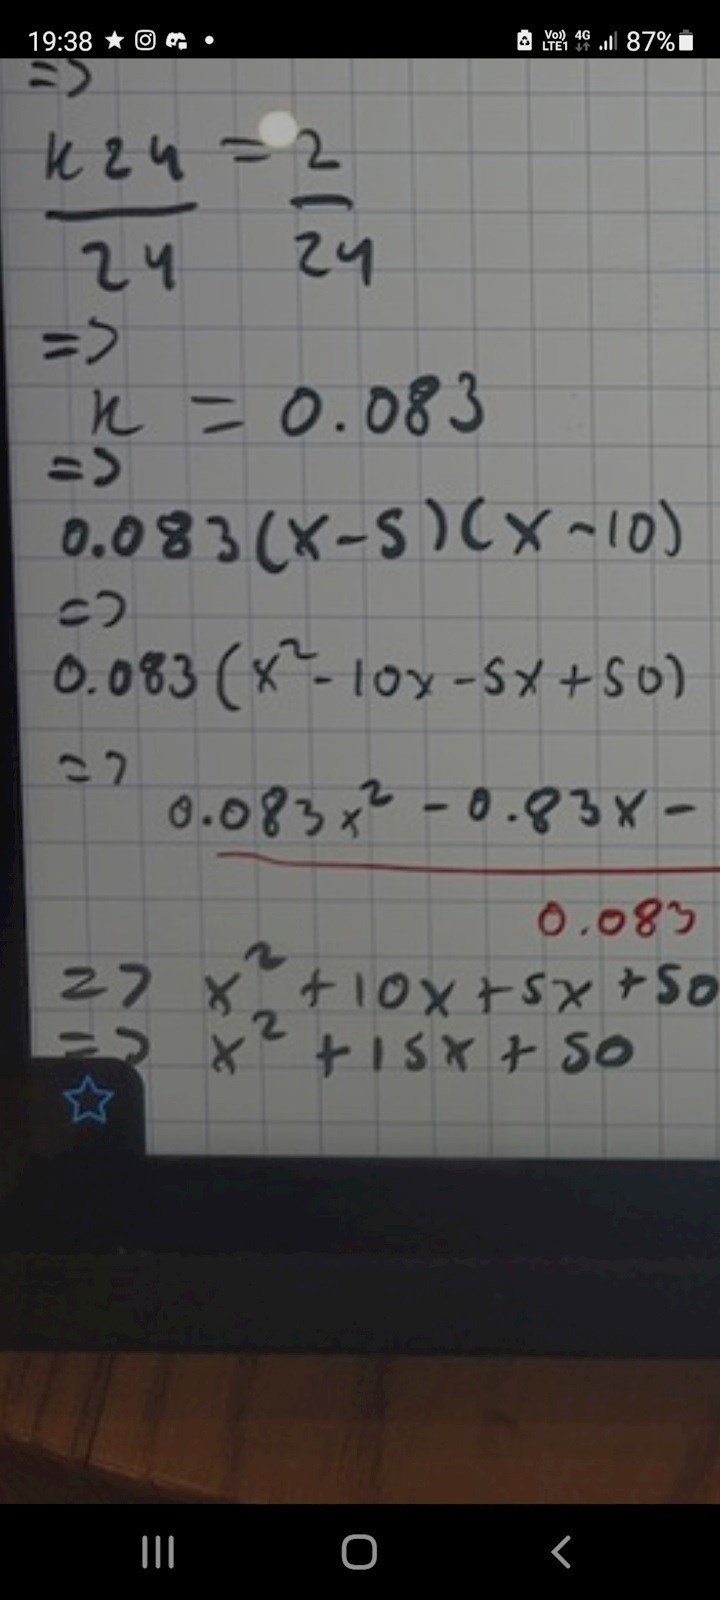 19:38 Vo)) LTE1 4G 87%
=>
k24 = 2
24 24
=>
k = 0.083
=>
0.083(x-5)(x-10)
=>
0.083(x²-10x-5x+50)
=>
0.083x² - 0.83x -
0.083
=> x² + 10x + 5x + 50
=> x² + 15x + 50